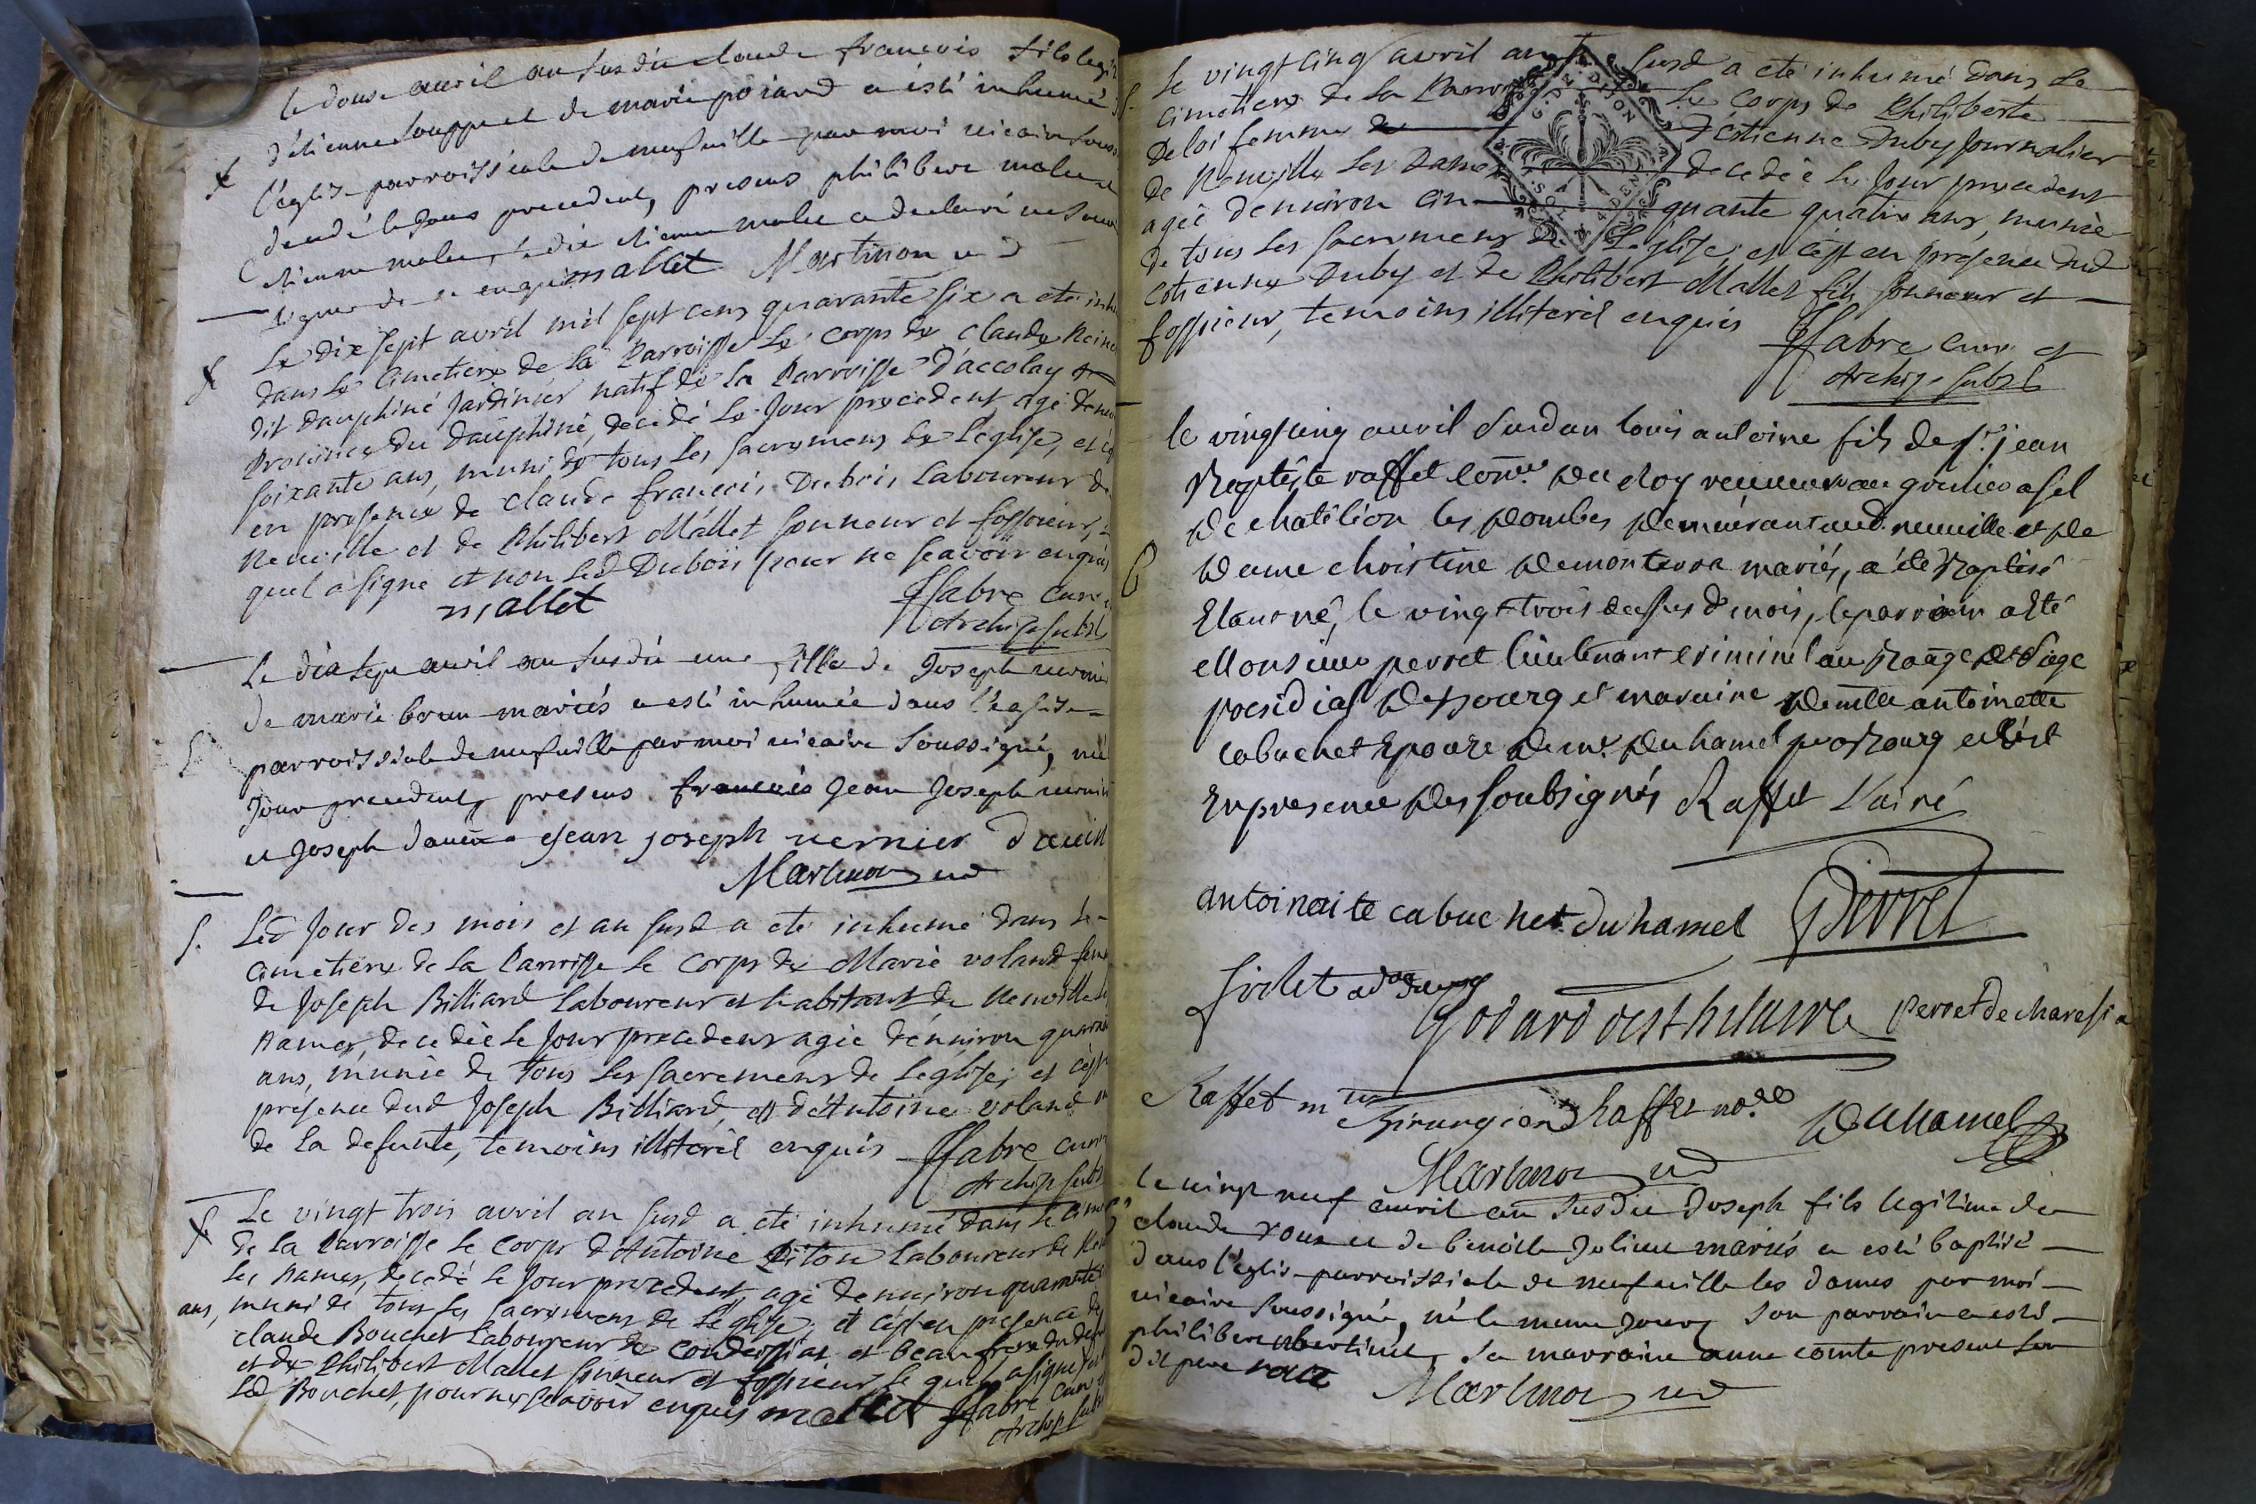 le douze avril an susdit claude francois fils legi
d'etienne et de marie poiand a esté inhumé
l'église parroissiale de neufville par moi vicaire sous
decedé le jour precedent, presens philibere malet
etienne malet, le dit etienne malet a declaré ne scavoir
signer de ce enquis mallet Martinon vic
Le dix sept avril mil sept cens quarante six a eté inhu
dans le cimetiere de la Parroisse le corps de claude Reine
dit dauphiné Jardinier natif de la Parroisse d'accolay
Province du dauphiné, decedé le Jour precedent, agé denvi
soixante ans, muni de tous les sacremens de l'eglise, et c'e
en presence de claude francois Dubois Laboureur de
Neuville et de Philibert Mallet sonneur et fossoieur, le
quel a signé et non led Dubois pour ne scavoir enquis
mallet ffabre curé
Archip. subst
Le dix sept avril an susdit une fille de Joseph vernie
de marie brun mariés a esté inhumée dans l'eglise
parroissiale de neufville par moi vicaire soussigné, née
Jour precedent, presens francois Jean Joseph vernie
et Joseph Jean joseph vernier
Martinon vic
Led Jour des mois et an susd a eté inhumé dans le
cimetiere de la Parroisse le corps de Marie voland fem
de Joseph Billiard Laboureur et habitant de Neuville le
Dames, decedée le Jour precedent agée d'environ quaran
ans, munie de tous les sacremens de l'eglise; et c'est
presence dud Joseph Billiard, et d'Antoine voland
de la defunte, temoins illiterés enquis ffabre curé
Archip subst
Le vingt trois avril an susd a eté inhumé dans le cime
de la Parroisse le corps d'Antoine Piton laboureur de Neu
les Dames, decedé le Jour precedent, agé denviron quarante
ans, muni de tous les sacremens de l'eglise, et c'est en presence de
claude Bouchet Laboureur de condeissiat et beaufrere du def
et de Philibert Mallet sonneur et fossoieur, le quel a signé
led Bouchet, pour ne scavoir enquis mallet ffabre curé
Archip subst
le vingt cinq avril an susd a eté inhumé dans le
cimetiere de la Parroisse le corps de Philiberte
Deloi femme d'estienne Duby Journalier
de Neuville les Dames decedée le Jour precedent
agée denviron cinquante quatre ans, munie
de tous les sacremens de l'eglise, et c'est en presence dud
etienne Duby et de Philibert Mallet fils sonneur et
fossoieur, temoins illiterés enquis ffabre curé et
Archip. subst
le vingt cinq avril susd an louis antoine fils de sr. jean
Baptiste raffet con.er du Roy receveur au grenier a sel
de chatilion les dombes demeurant aud. neuville et de
dame christine demonterra mariés, a été Baptisé
Etant né, le vingt trois dessus d. mois, le parrain a Eté
Monsieur perret lieutenant criminel au Baage et siege
presidial de Bourg et maraine demlle antoinette
cabuchet Epouze de mr. duhamel et c'est
En presence des soubsignés Raffet L'ainé
antoinaite cabuchet duhamel Perret
Godard perret de
Raffet m tre
chirurgien Raffet no.re Duhamel
Martinon vic
le vingt neuf avril an susdit Joseph fils legitime de
claude roux et de benoite Julien mariés a esté baptisé
dans l'eglise parroissiale de neufville les dames par moi
vicaire soussigné, né le meme Jour, son parrain a esté
philibere, sa marraine anne comte present son
dit pere roux Martinon vic